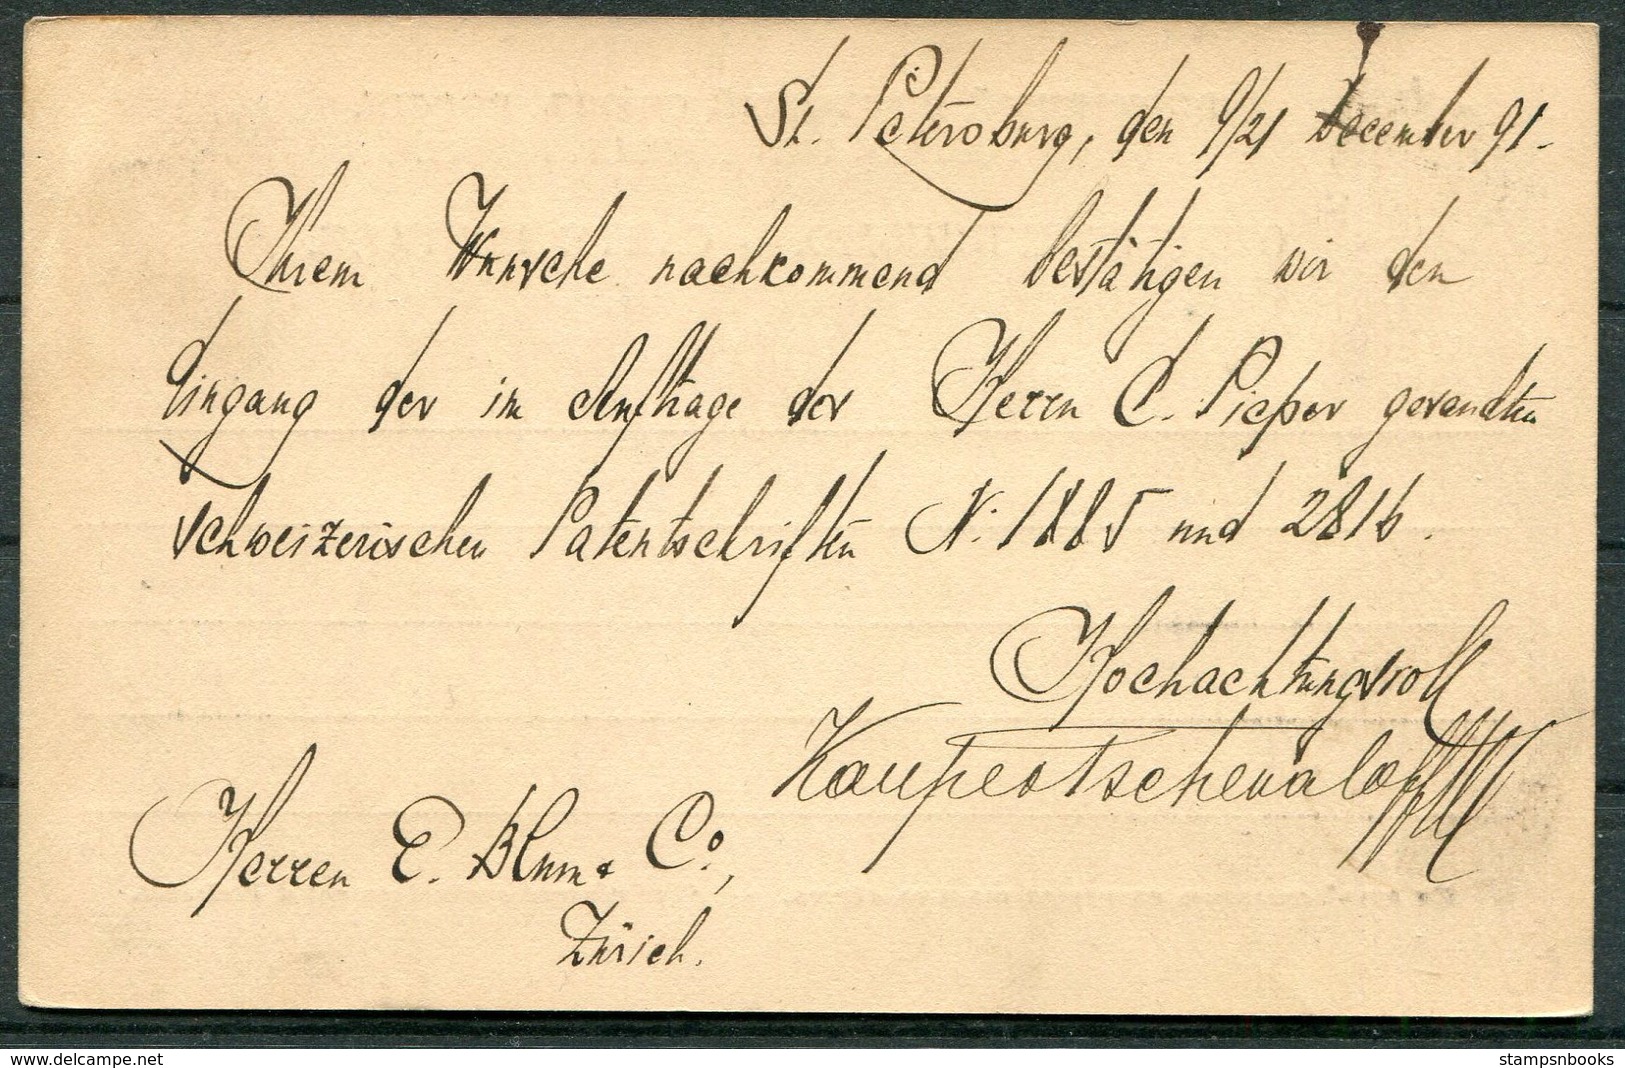 St. Petersburg, den 9/21 December 91.
Ihrem Wunsche nachkommend bestätigen wir den
Eingang der im Auftrage der Herrn C. Pieper gesandten
schweizerischen Patentschriften N: 1885 und 2816.
Hochachtungsvoll
Herren E. Blum & Co,
Zürich.
www.delcampe.net
stampsnbooks